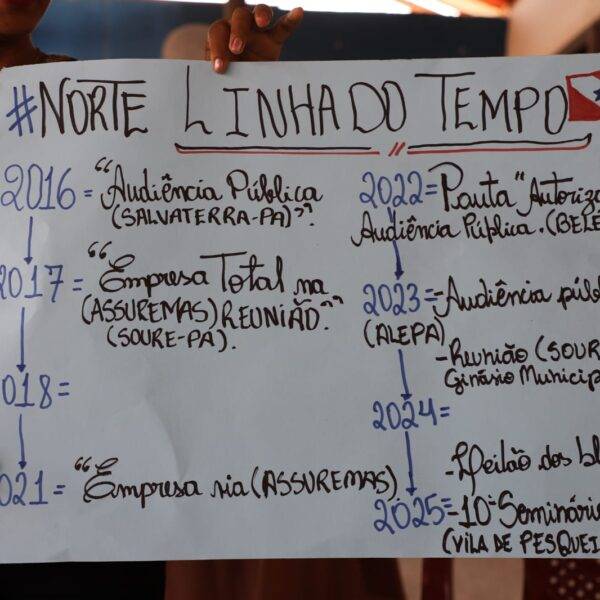 #NORTE LINHA DO TEMPO
2016 = "Audiência Pública
(SALVATERRA-PA)".
2017 = "Empresa Total na
(ASSUREMAS) REUNIÃO."
(SOURE-PA).
2018 =
2021 = "Empresa via (ASSUREMAS)
2022 = Pauta "Autoriza
Audiência Pública. (BELÉ
2023 = -Audiência públ
(ALEPA)
-Reunião (SOUR
Ginásio Municip
2024 =
-Leilão dos bl
2025 = -10º Seminário
(VILA DE PESQUEI